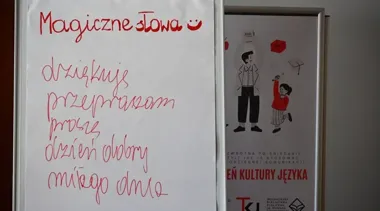 Magiczne słowa
dziękuję
przepraszam
proszę
dzień dobry
miłego dnia
EŃ KULTURY JĘZYKA